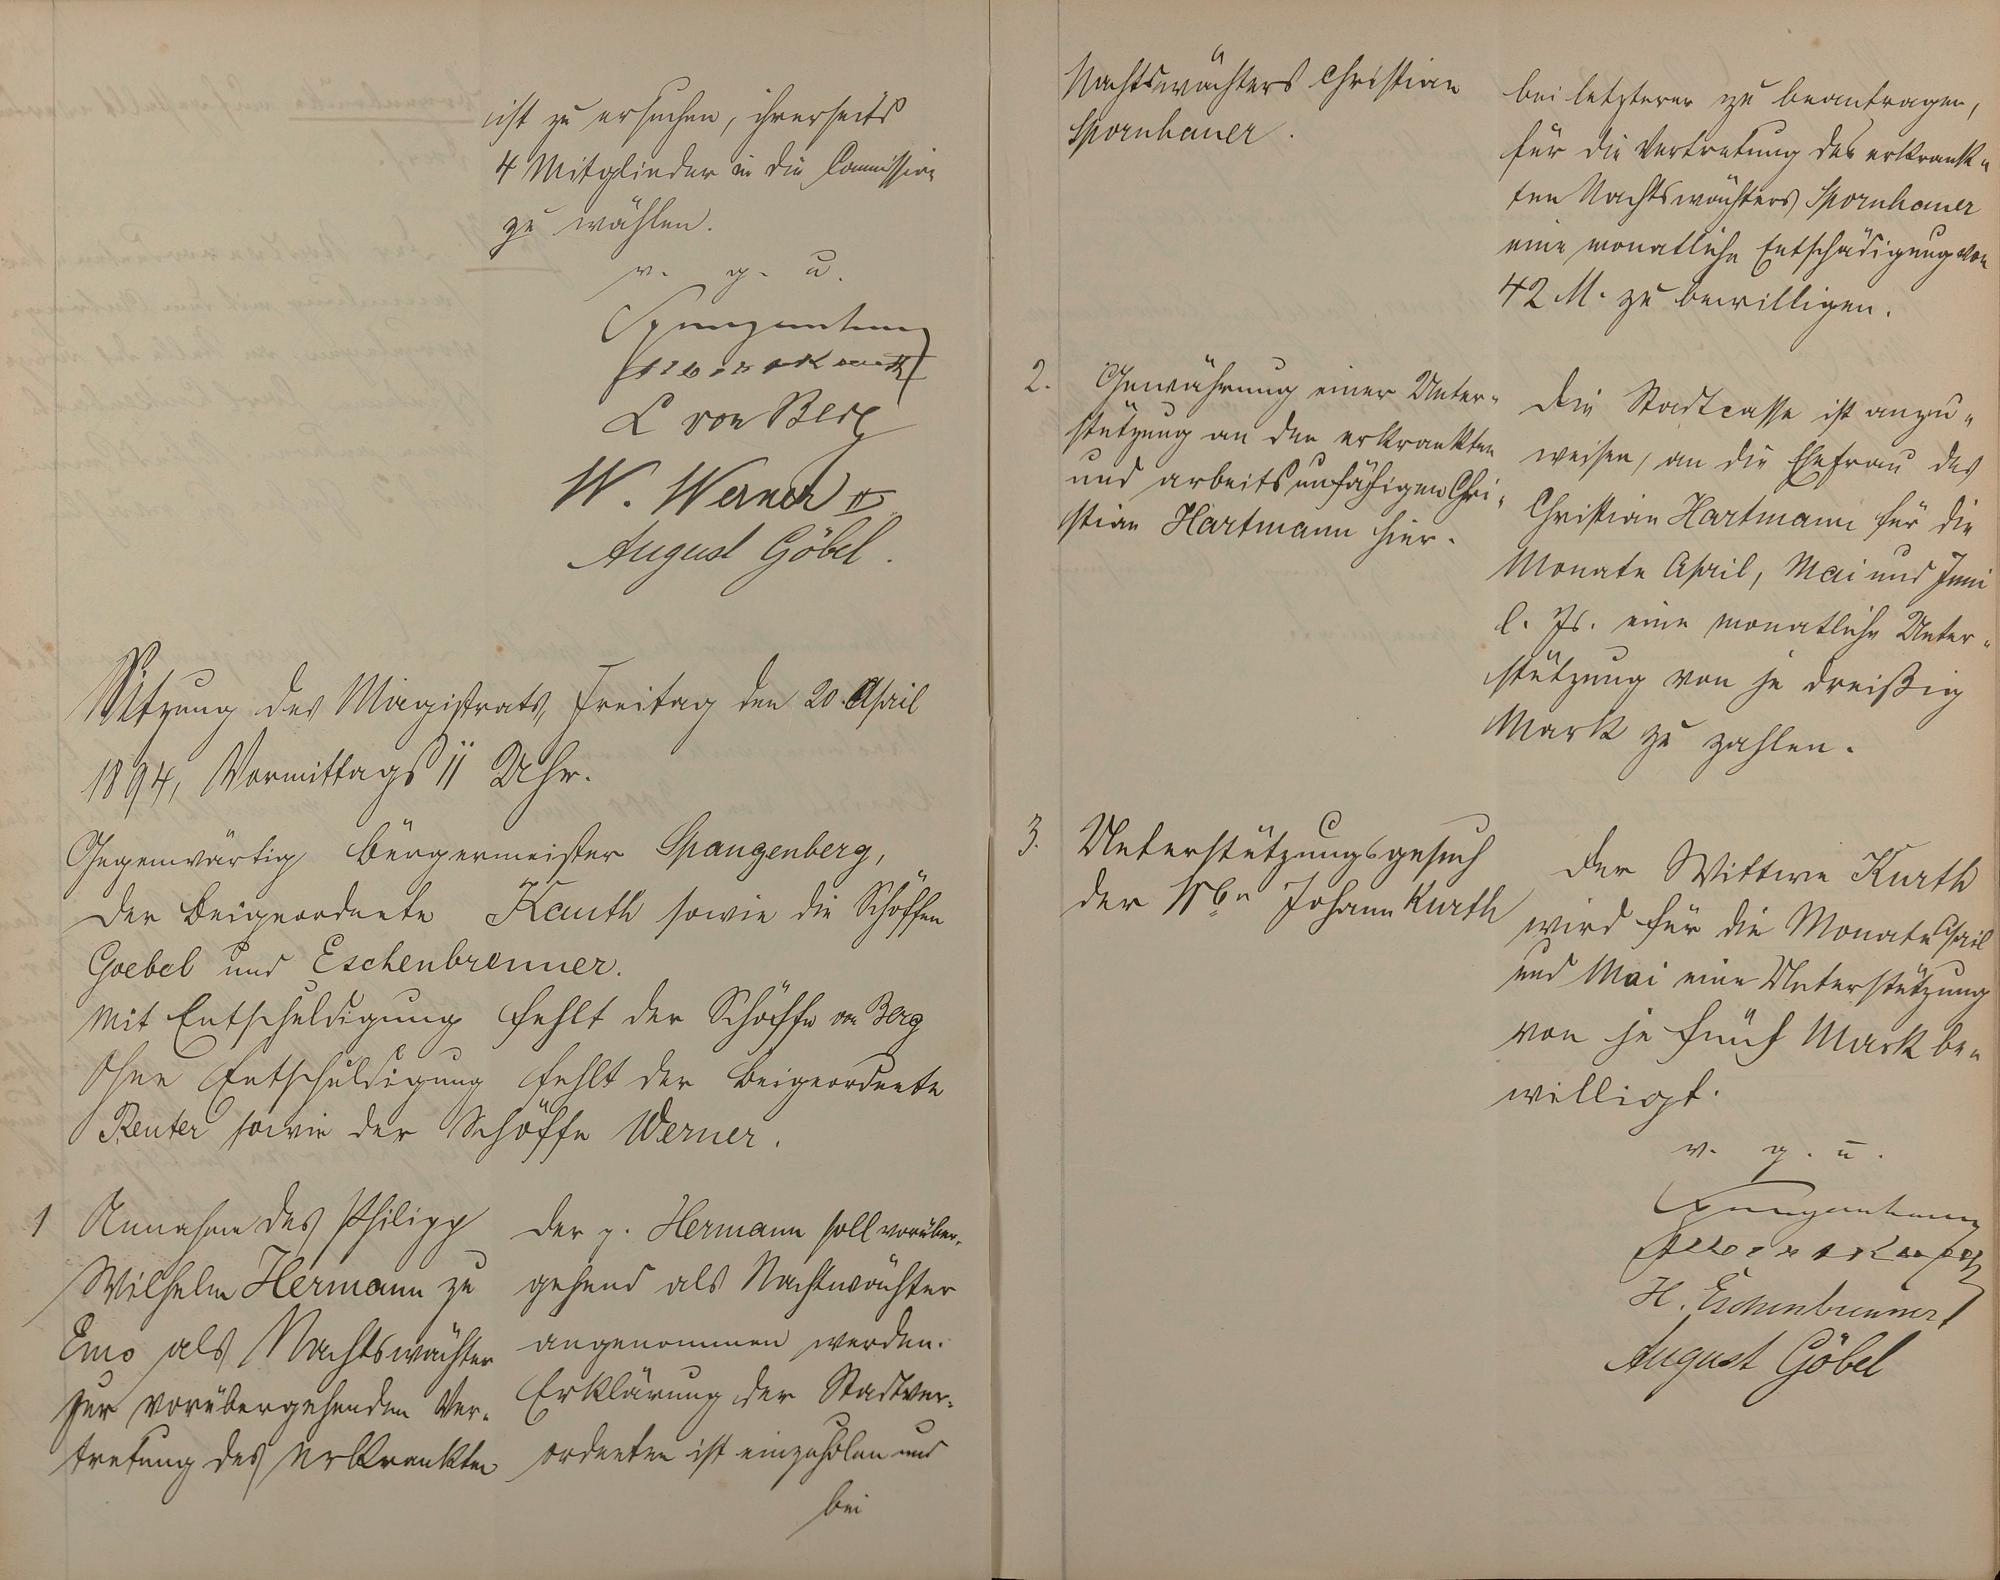 ist zu ersuchen, ihrerseits
4 Mitglieder in die Commission
zu wählen.
v. g. u.
Spangenberg
L von Berg
W. Werner II
August Göbel.
Sitzung des Magistrats, Freitag den 20. April
1894, Vormittags 11 Uhr.
Gegenwärtig Bürgermeister Spangenberg,
der Beigeordnete Kauth sowie die Schöffen
Goebel und Eschenbrenner.
Mit Entschuldigung fehlt der Schöffe von Berg
Ohne Entschuldigung fehlt der Beigeordnete
Reuter sowie der Schöffe Werner.
1 Annahme des Philipp
Wilhelm Hermann zu
Ems als Nachtswächter
zur vorübergehenden Ver-
tretung des erkrankten
Der p. Hermann soll vorüber-
gehend als Nachtwächter
angenommen werden.
Erklärung der Stadtver-
ordneten ist einzuholen und
bei
Nachtswächters Christian
Spornhauer.
bei letzterer zu beantragen,
für die Vertretung des erkrank-
ten Nachtswächters Spornhauer
eine monatliche Entschädigung von
42 M. zu bewilligen.
2. Gewährung einer Unter-
stützung an den erkrankten
und arbeitsunfähigen Chri-
stian Hartmann hier.
Die Stadtcasse ist anzu-
weisen, an die Ehefrau des
Christian Hartmann für die
Monate April, Mai und Juni
l. Js. eine monatliche Unter-
stützung von je dreißig
Mark zu zahlen.
3. Unterstützungsgesuch
der Wwe Johann Kurth
Der Wittwe Kurth
wird für die Monate April
und Mai eine Unterstützung
von je fünf Mark be-
willigt.
v. g. u.
Spangenberg
H. Eschenbrenner
August Göbel